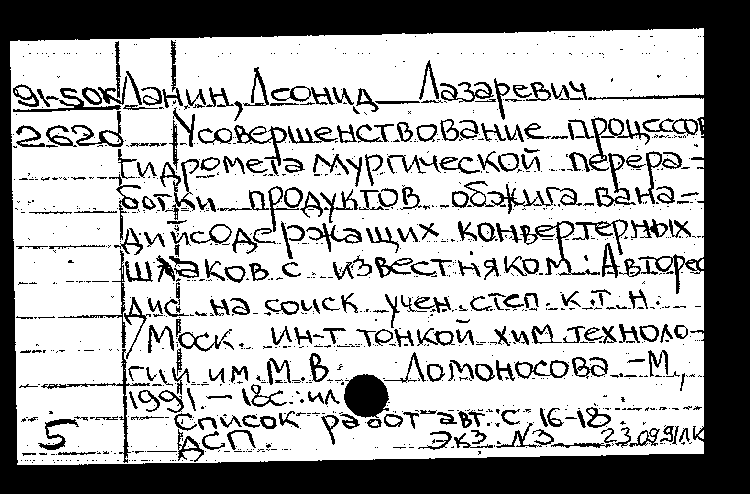 91-50к Ланин, Леонид Лазаревич
2620 Усовершенствование процессов
гидрометаллургической перера-
ботки продуктов обжига вана-
дийсодержащих конвертерных
шлаков с известняком: Авторе
дис. на соиск. учен. степ. к.т.н.
/Моск. ин-т тонкой хим. техноло-
гии им. М.В. Ломоносова. -М.,
1991. - 18с.: ил
Список работ авт.: с. 16-18.
5 ДСП. Экз. N3 23.09.91 ЛК